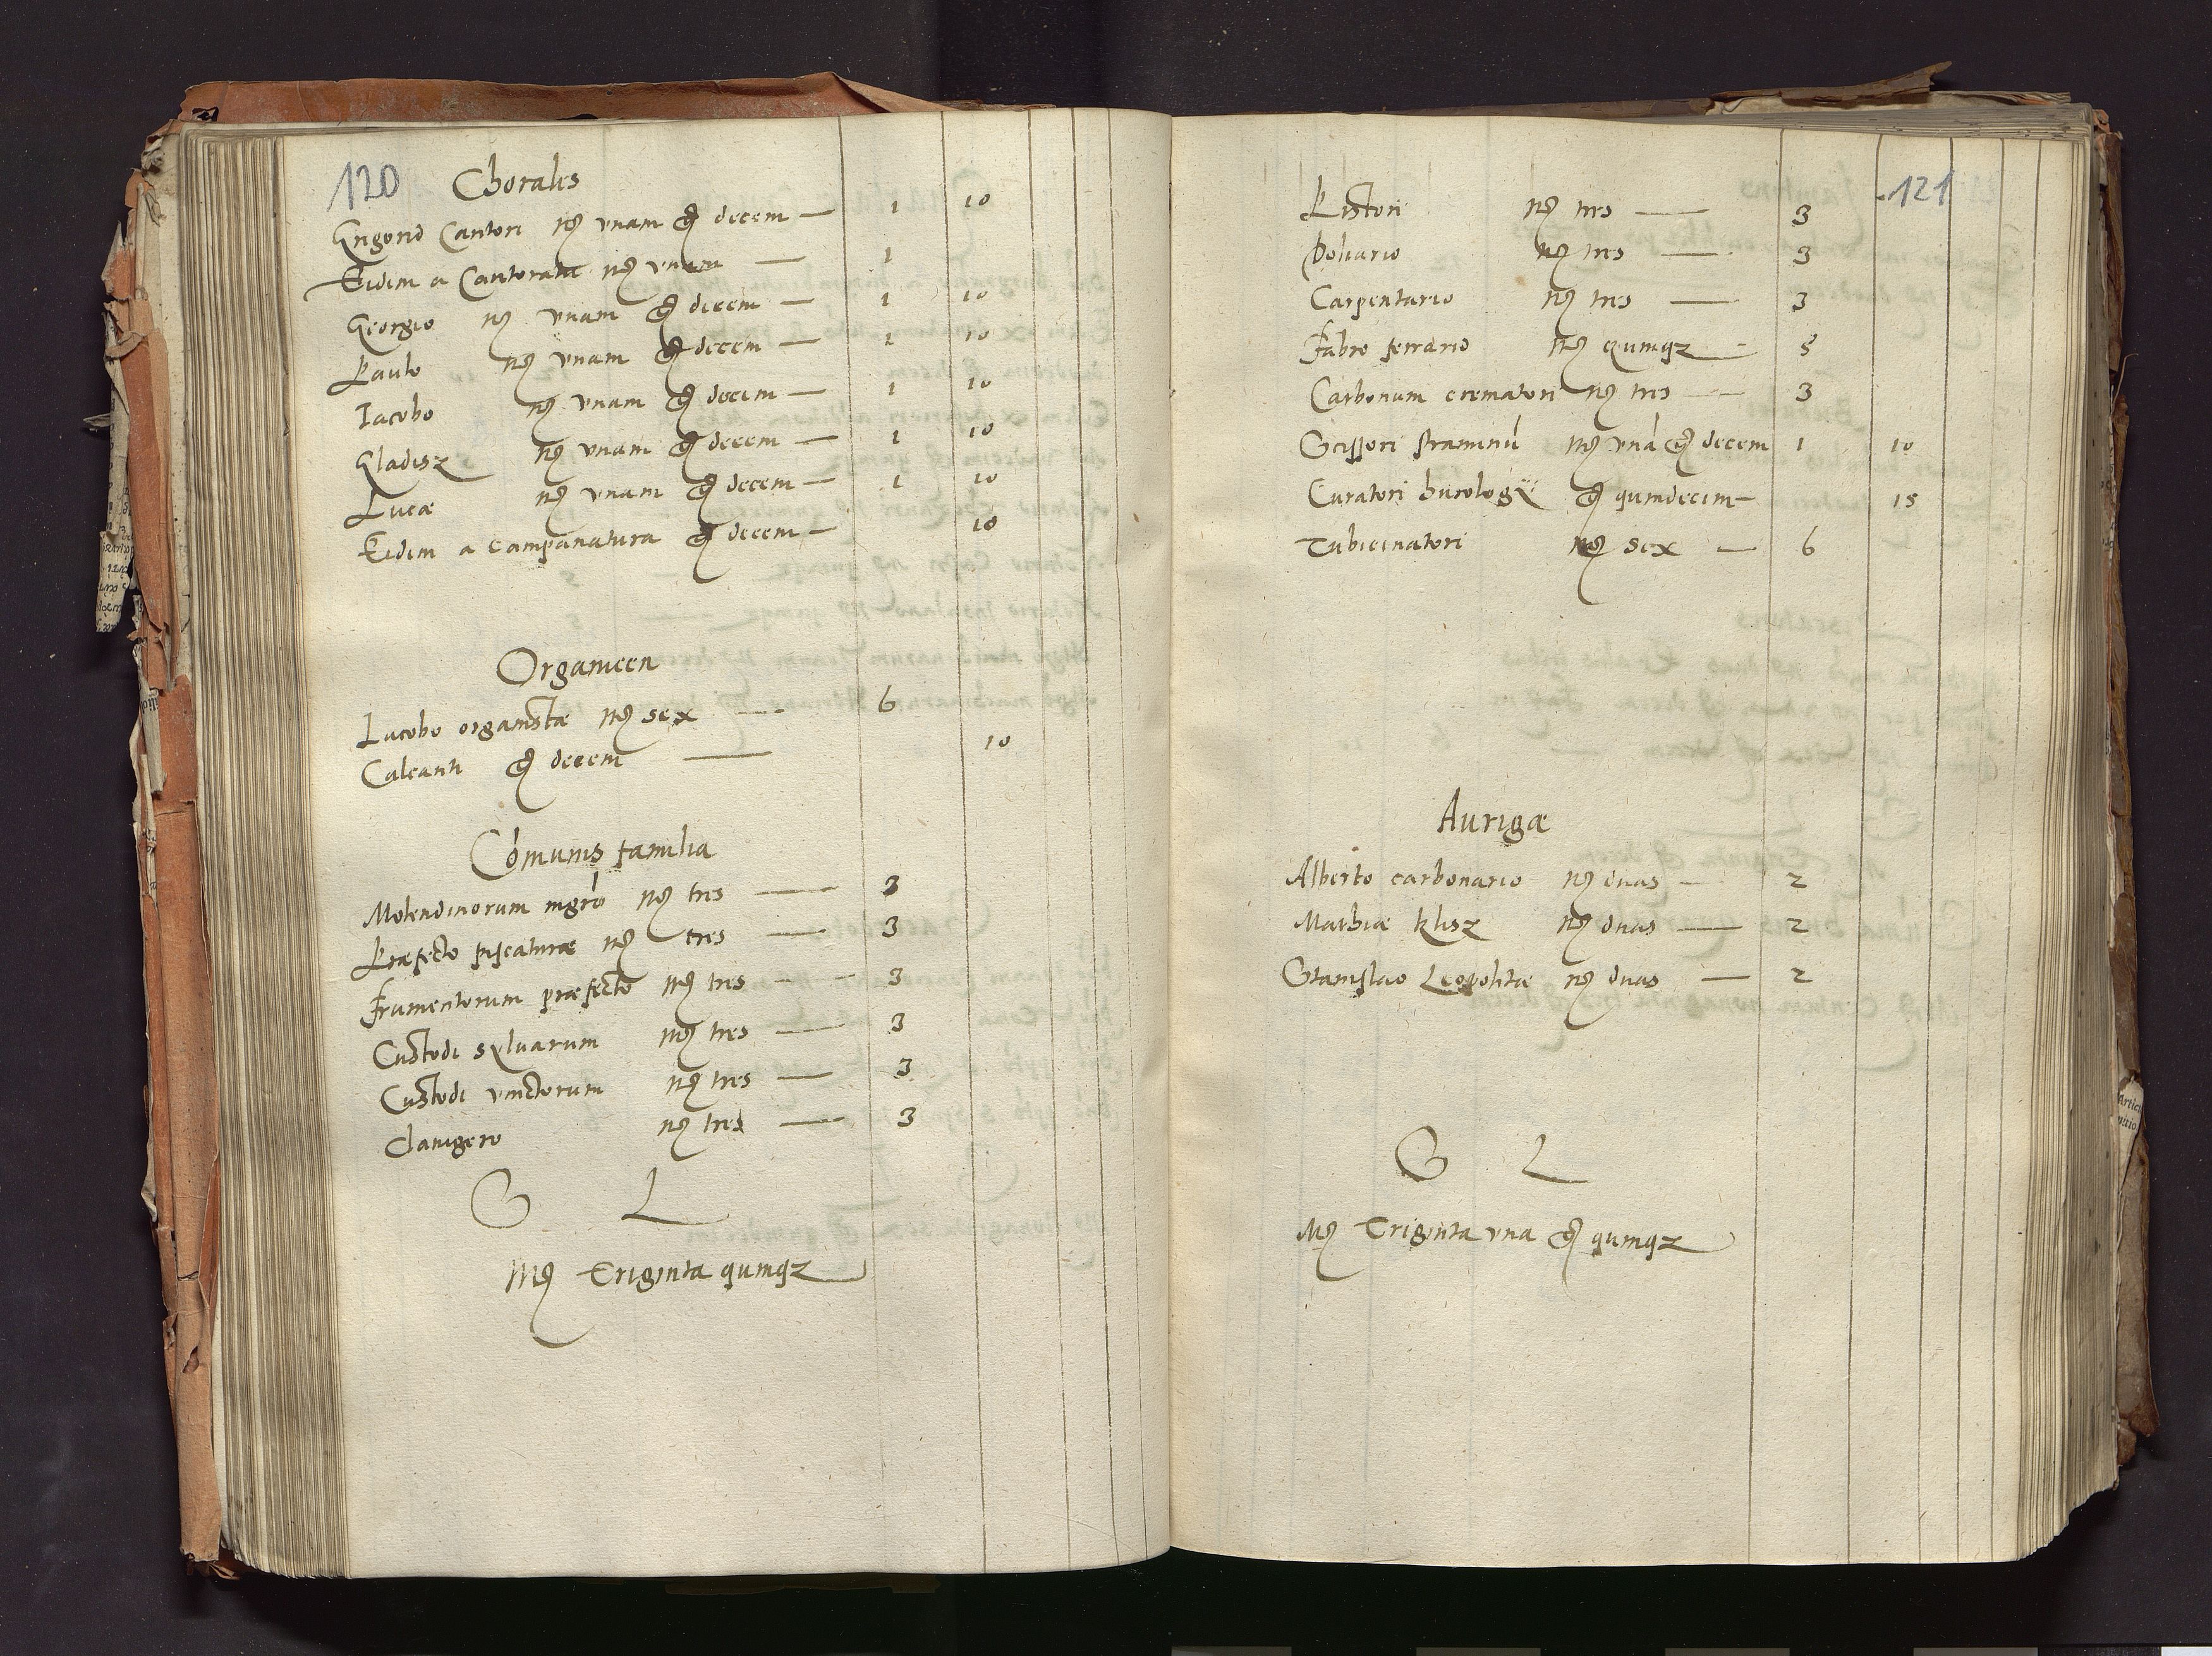 120
Chorales
Grigorio Cantori mͬ vnam gͬ decem — 1 10
Eidem a Cantoratu mͬ vnam — 1
Georgio mͬ vnam gͬ decem — 1 10
Paulo mͬ vnam gͬ decem — 1 10
Iacobo mͬ vnam gͬ decem — 1 10
Gladisz mͬ vnam gͬ decem — 1 10
Lucæ mͬ vnam gͬ decem — 1 10
Eidem a campanatura gͬ decem — 10
Organicen
Iacobo organistæ mͬ sex — 6
Calcanti gͬ decem — 10
Cōmunis familia
Molendinorum mgro mͬ tres — 3
Præfecto piscaturæ mͬ tres — 3
Frumentorum præfecto mͬ tres — 3
Custodi syluarum mͬ tres — 3
Custodi vinctorum mͬ tres — 3
Clauigero mͬ tres — 3
S L
Mͬ Triginta quinqz
121
Pistori mͬ tres — 3
Doliario mͬ tres — 3
Carpentario mͬ tres — 3
Fabro ferrario mͬ quinqz — 5
Carbonum crematori mͬ tres — 3
Scissori straminū mͬ vnā gͬ decem 1 10
Curatori horologÿ gͬ quindecim — 15
Tubicinatori mͬ sex — 6
Aurigæ
Alberto carbonario mͬ duas — 2
Mathiæ klisz mͬ duas — 2
Stanislao Leopolitæ mͬ duas — 2
S L
Mͬ Triginta vna gͬ quinqz